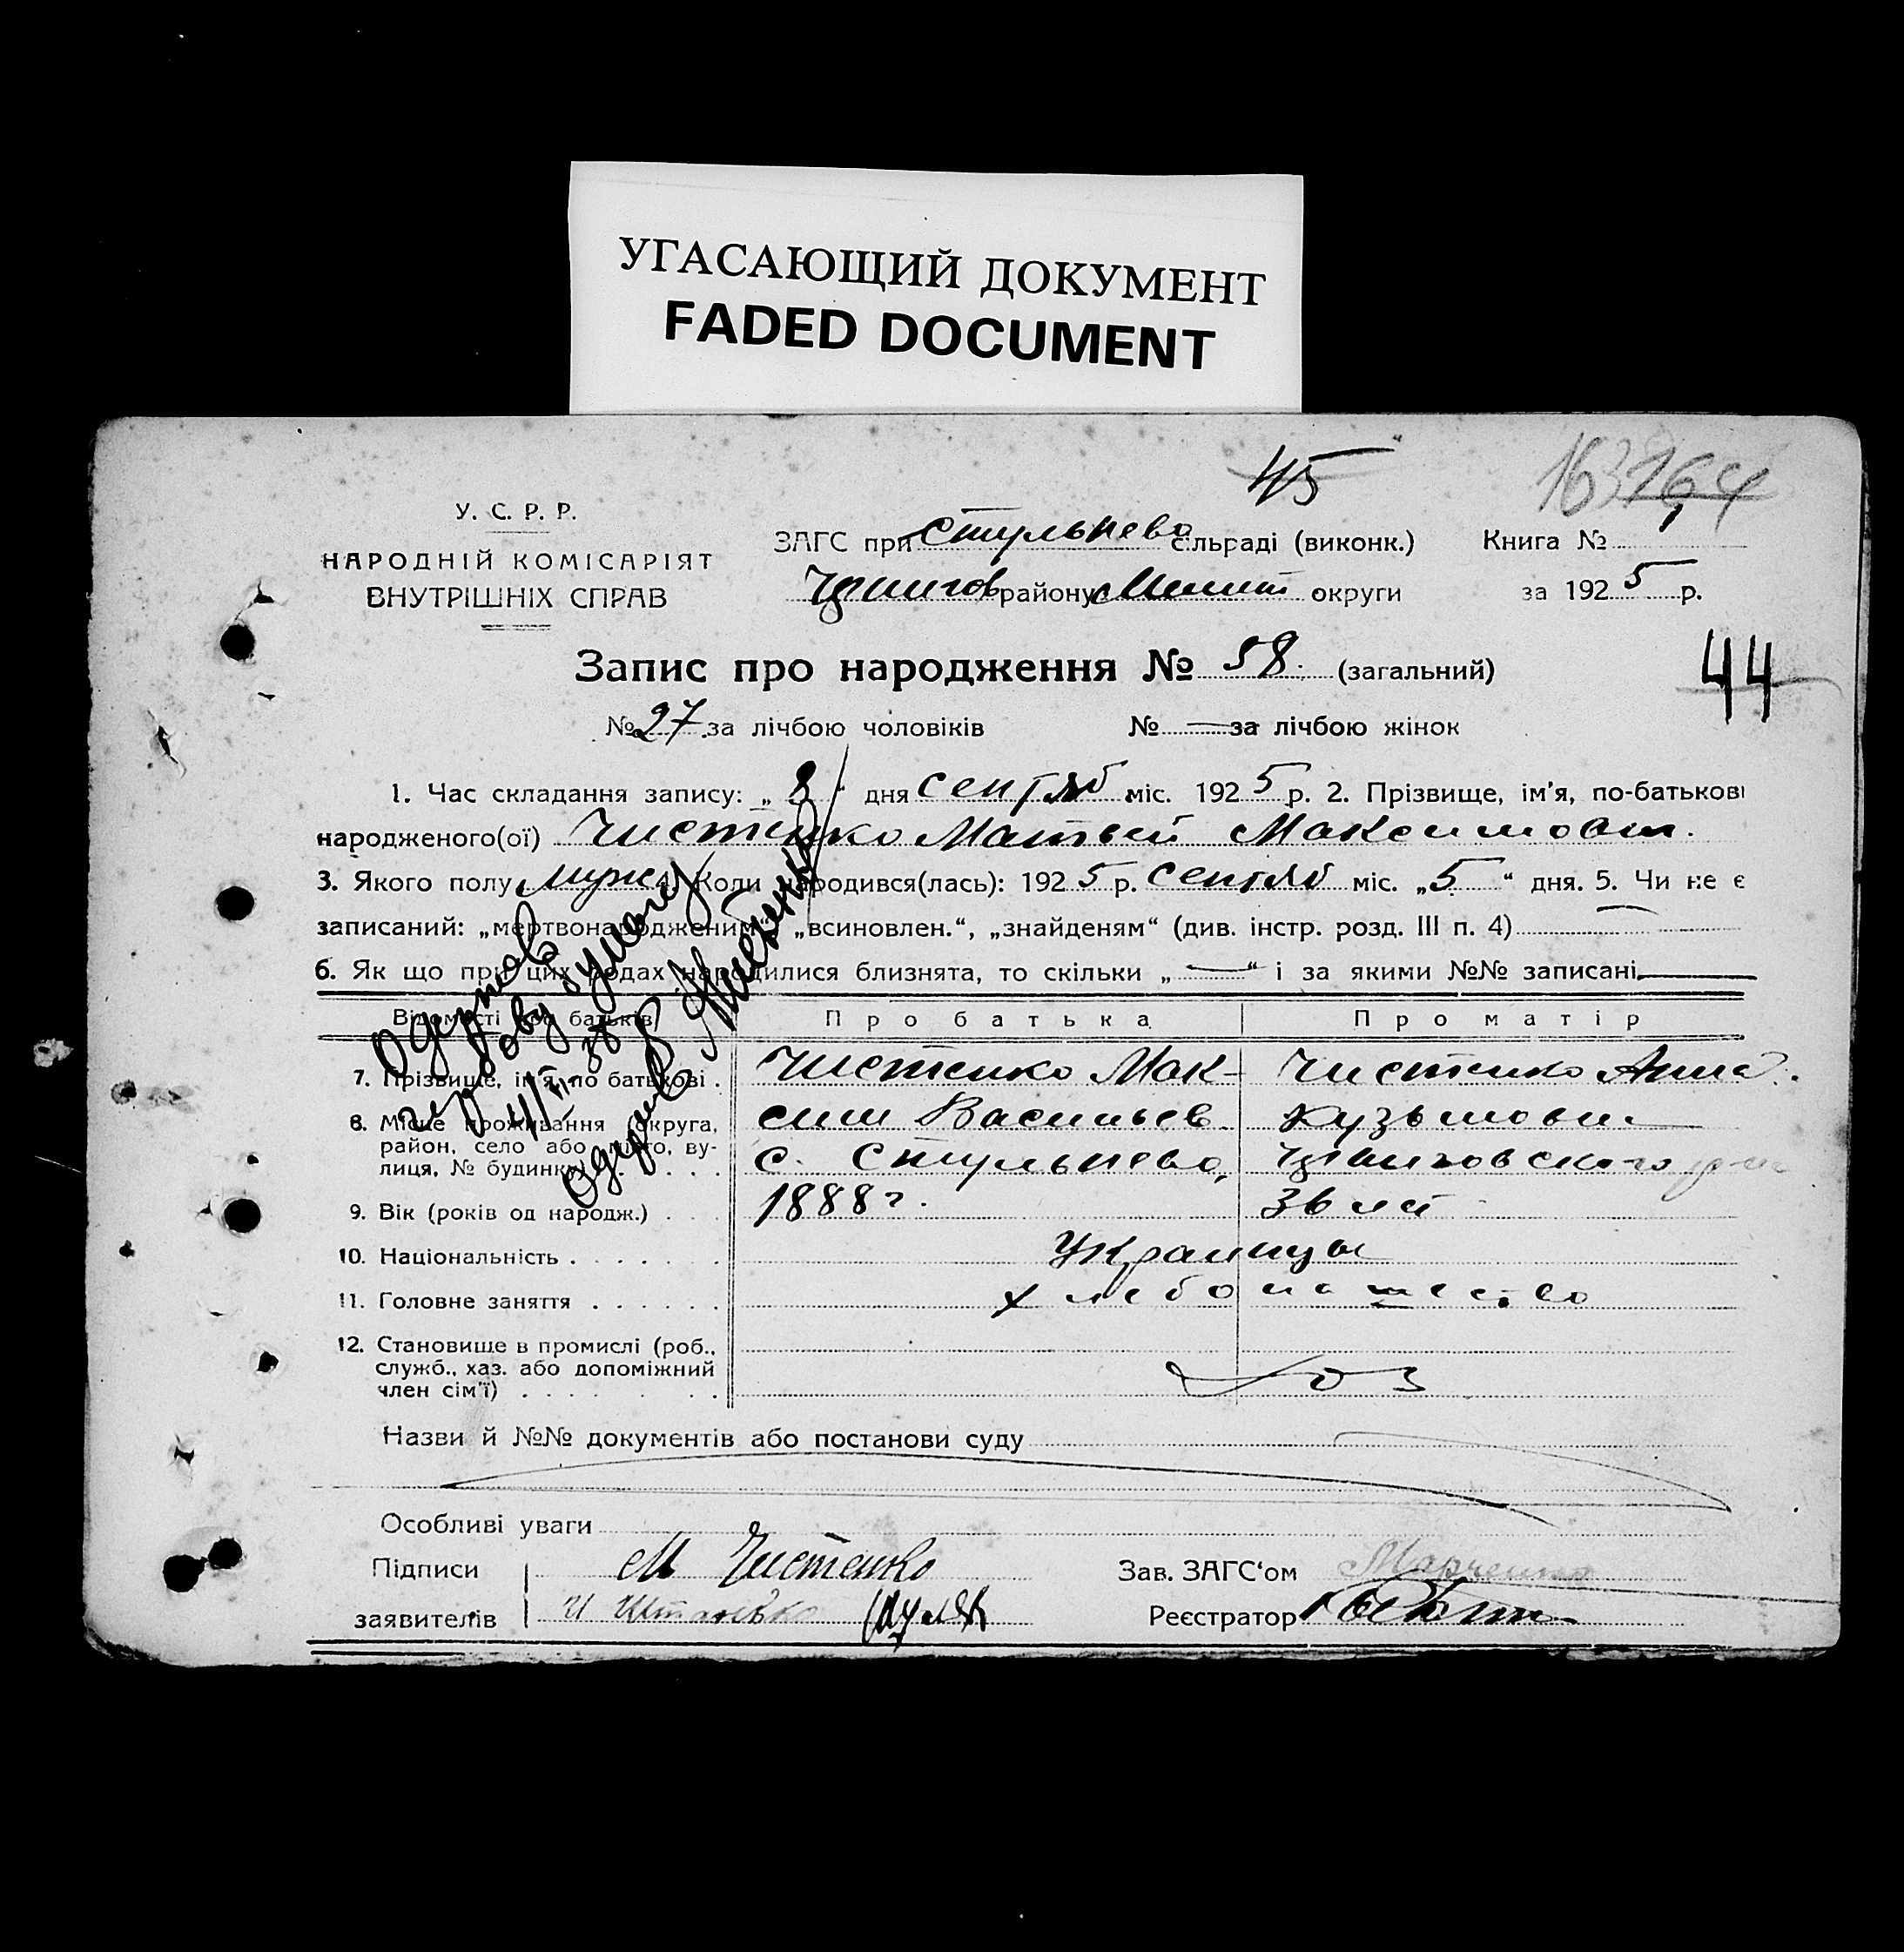 УГАСАЮЩИЙ ДОКУМЕНТ
FADED DOCUMENT
45
163 164
У. С. Р. Р.
НАРОДНІЙ КОМІСАРІЯТ
ВНУТРІШНІХ СПРАВ
ЗАГС при Стульнево сільраді (виконк.) Книга № 1
району Мелит округи за 1925 р.
Запис про народження № 58. (загальний)
44
№ 27 за лічбою чоловіків № — за лічбою жінок
1. Час складання запису: „8“ дня сентяб міс. 1925 р. 2. Прізвище, ім'я, по-батькові
народженого(ої) Чистенко Матвей Максимович.
3. Якого полу муж 4. Коли народився(лась): 1925 р. сентяб міс. „5“ дня. 5. Чи не є
записаний: „мертвонародженим“, „всиновлен.“, „знайденям“ (див. інстр. розд. III п. 4)
6. Як що при цих родах народилися близнята, то скільки „—“ і за якими №№ записані
Відомості про батьків Про батька Про матір
7. Прізвище, ім'я, по батькові . Чистенко Мак- Чистенко Анна
8. Місце проживання (округа, сим Васильев Кузьмовн
район, село або місто, ву-
лиця, № будинку) . . . . с. Стульнево,
9. Вік (років од народж.) . . . 1888 г. 36 лет
10. Національність . . . . . . . Украинцы
11. Головне заняття . . . . . . хлебопашество
12. Становище в промислі (роб.,
служб., хаз. або допоміжний Хоз
член сім'ї) . . . . . . . .
Назви й №№ документів або постанови суду
Особливі уваги
Підписи М Чистенко Зав. ЗАГС'ом Марченко
заявителів И Реєстратор